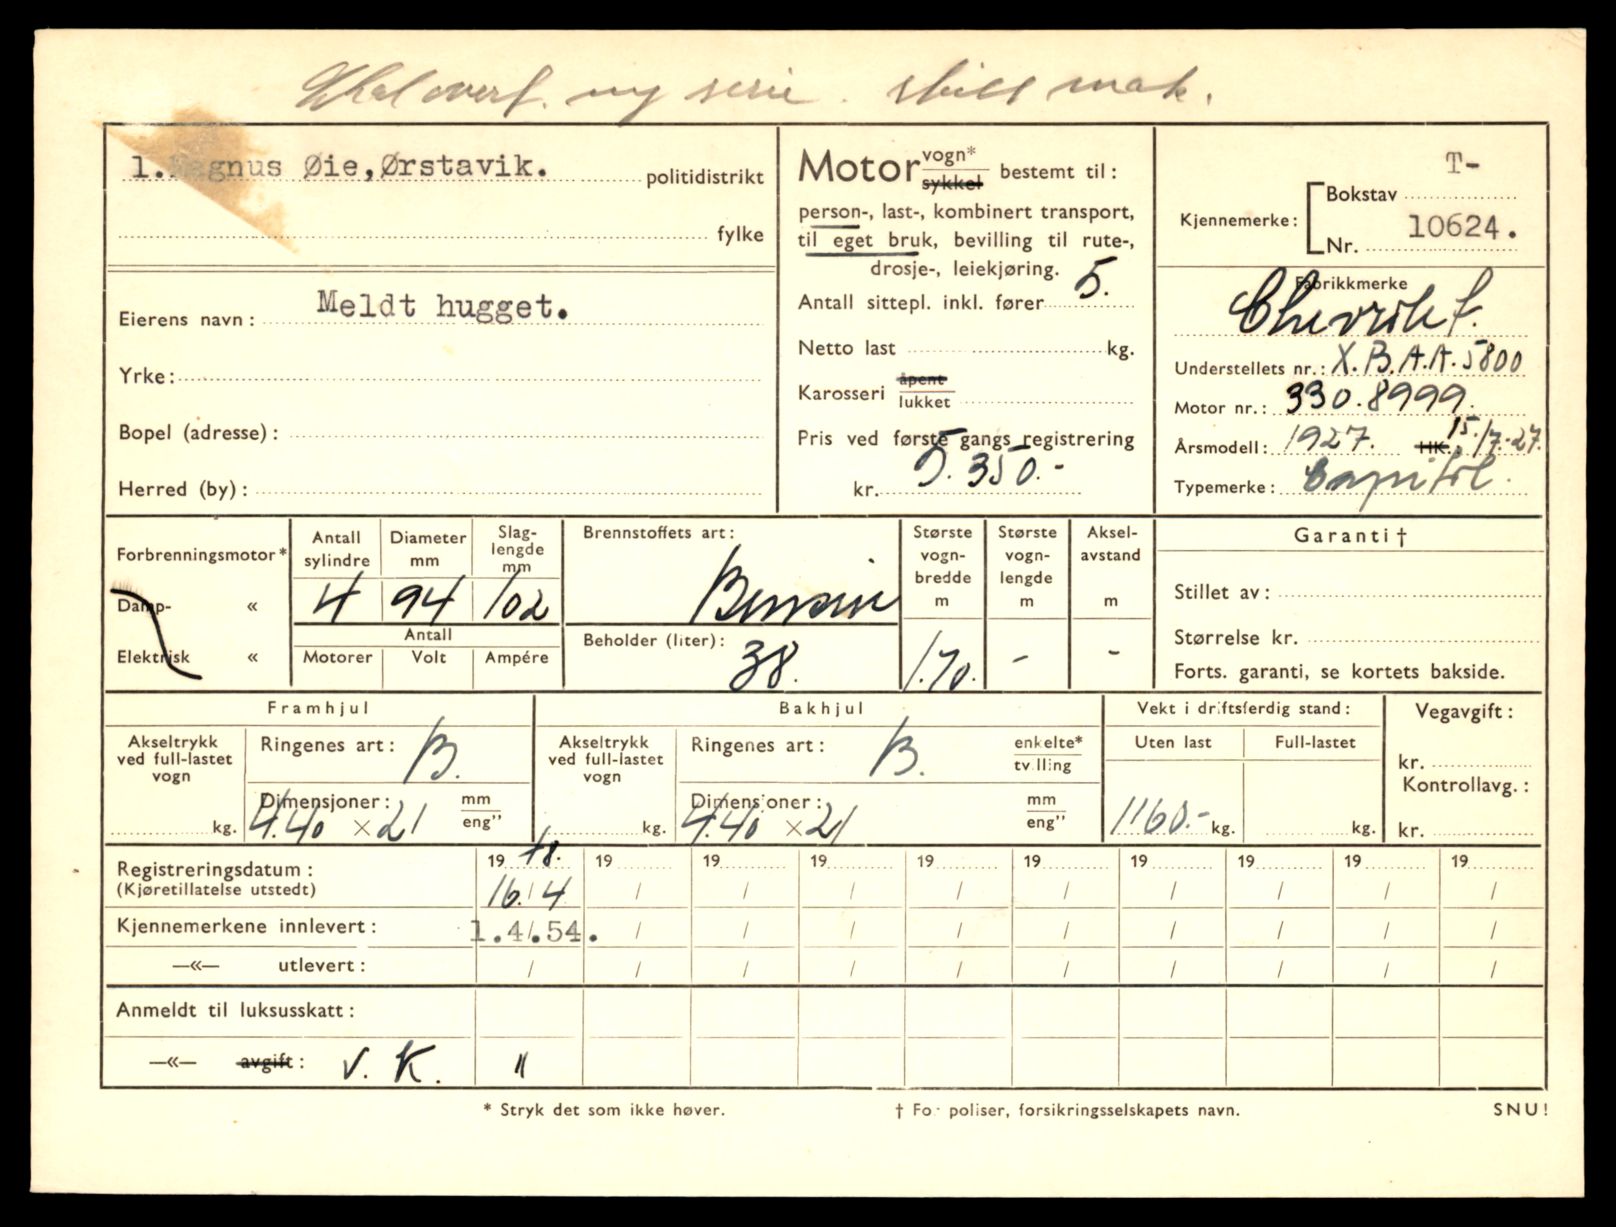 Skal overf. ny serie.
1. Magnus Øie, Ørstavik. politidistrikt
fylke
Eierens navn: Meldt hugget.
Yrke:
Bopel (adresse):
Herred (by):
Motor vogn* sykkel bestemt til:
person-, last-, kombinert transport,
til eget bruk, bevilling til rute-,
drosje-, leiekjøring.
Antall sittepl. inkl. fører 5.
Netto last kg.
Karosseri åpent lukket
Pris ved første gangs registrering
kr. 5.350.-
Kjennemerke: Bokstav T-
Nr. 10624.
Fabrikkmerke
Chevrolet.
Understellets nr.: X.B.A.A.5800
Motor nr.: 330.8999.
Årsmodell: 1927. HK. 15./7.-27.
Typemerke: Capitol.
Forbrenningsmotor*
Damp- «
Elektrisk «
Antall sylindre
4
Diameter mm
94
Slaglengde mm
102
Antall
Motorer Volt Ampére
Brennstoffets art:
Bensin
Beholder (liter):
38.
Største vognbredde m
1.70.
Største vognlengde m
-
Akselavstand m
-
Garanti †
Stillet av:
Størrelse kr.
Forts. garanti, se kortets bakside.
Framhjul
Akseltrykk ved full-lastet vogn
kg.
Ringenes art: B.
Dimensjoner: mm eng"
4.40 x 21
Bakhjul
Akseltrykk ved full-lastet vogn
kg.
Ringenes art: B. enkelte* tvilling
Dimensjoner: mm eng"
4.40 x 21
Vekt i driftsferdig stand:
Uten last Full-lastet
1160.- kg. kg.
Vegavgift:
kr.
Kontrollavg.:
kr.
Registreringsdatum: 1948. 19 19 19 19 19 19 19 19 19
(Kjøretillatelse utstedt) 16./4 / / / / / / / / /
Kjennemerkene innlevert: 1.4/.54. / / / / / / / / /
—«— utlevert: / / / / / / / / / /
Anmeldt til luksusskatt:
—«— avgift: V. K. "
* Stryk det som ikke høver. † For poliser, forsikringsselskapets navn. SNU!